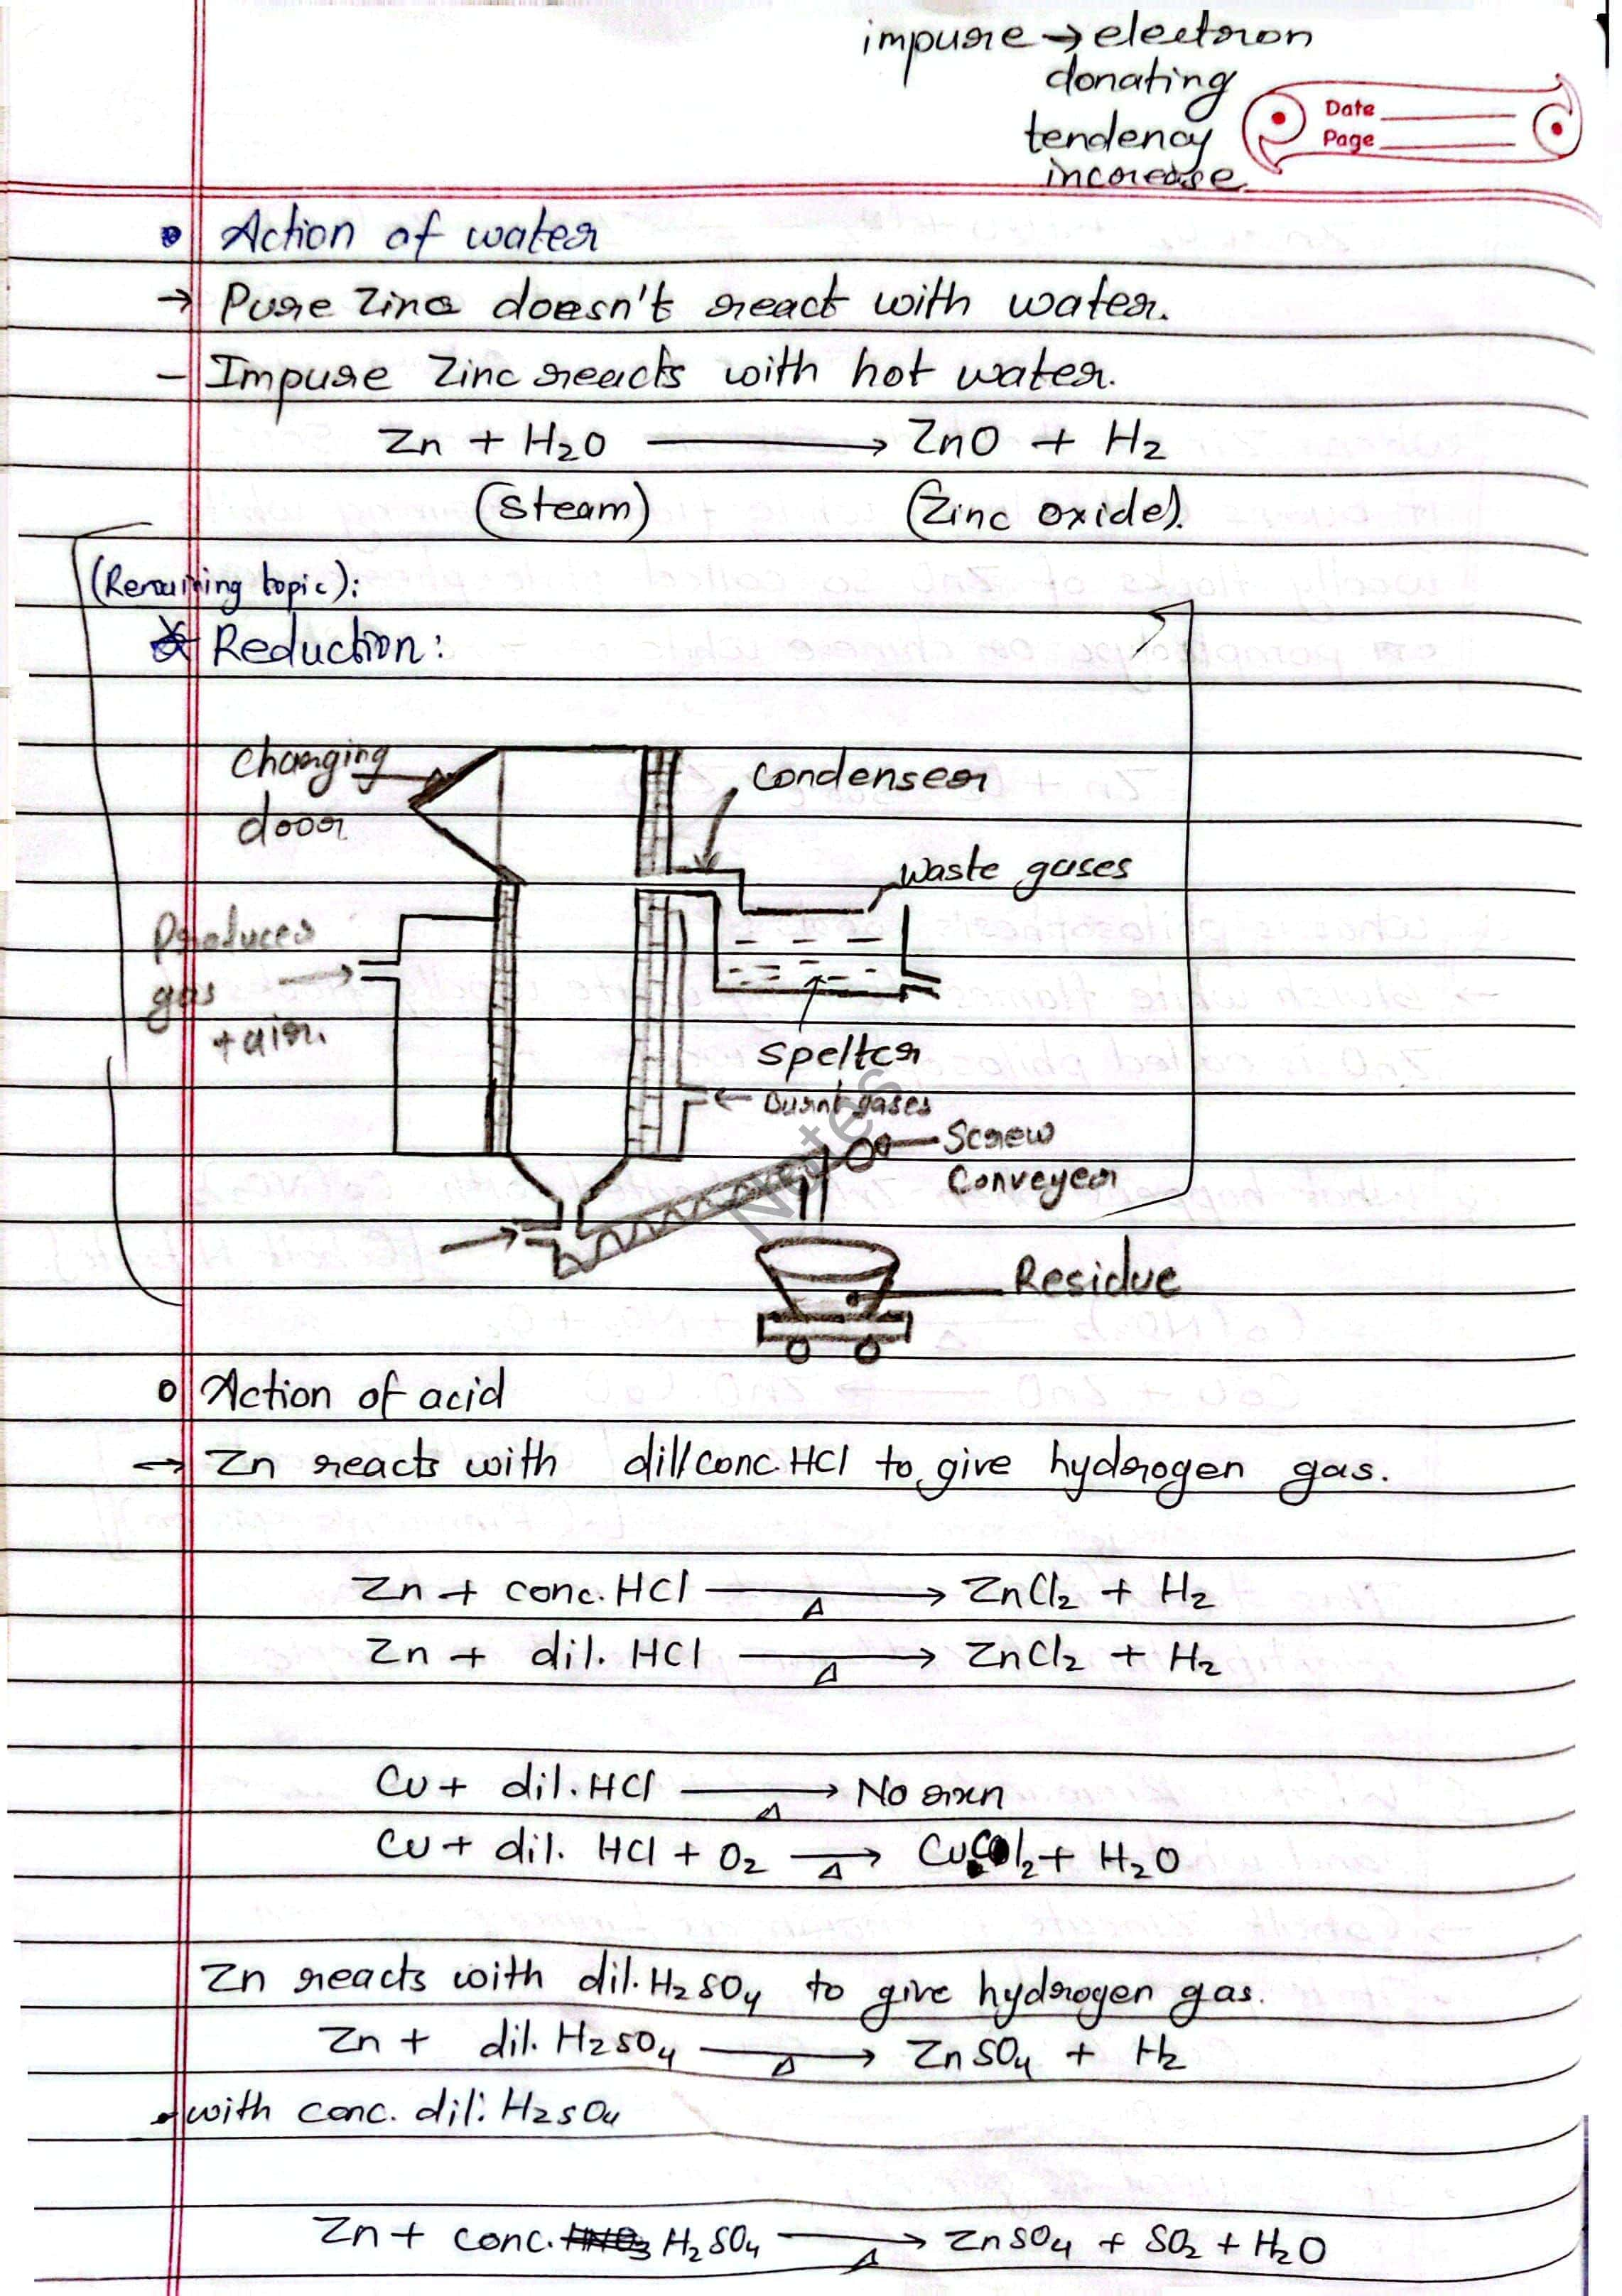 impure → electron
donating
tendency
increase
Date
Page
• Action of water
→ Pure Zinc doesn't react with water.
– Impure Zinc reacts with hot water.
Zn + H2O ⟶ ZnO + H2
(steam) (Zinc oxide).
(Remaining topic):
* Reduction:
Charging
door
condenser
waste gases
Producer
gas
+ air.
spelter
Burnt gases
Screw
Conveyer
Notes
Residue
o Action of acid
→ Zn reacts with dil/conc. HCl to give hydrogen gas.
Zn + conc. HCl ⟶ ZnCl2 + H2
Δ
Zn + dil. HCl ⟶ ZnCl2 + H2
Δ
Cu + dil. HCl ⟶ No rxn
Δ
Cu + dil. HCl + O2 ⟶ CuCl2 + H2O
Δ
Zn reacts with dil. H2SO4 to give hydrogen gas.
Zn + dil. H2SO4 ⟶ ZnSO4 + H2
Δ
• with conc. dil: H2SO4
Zn + conc. HNO3 H2SO4 ⟶ ZnSO4 + SO2 + H2O
Δ